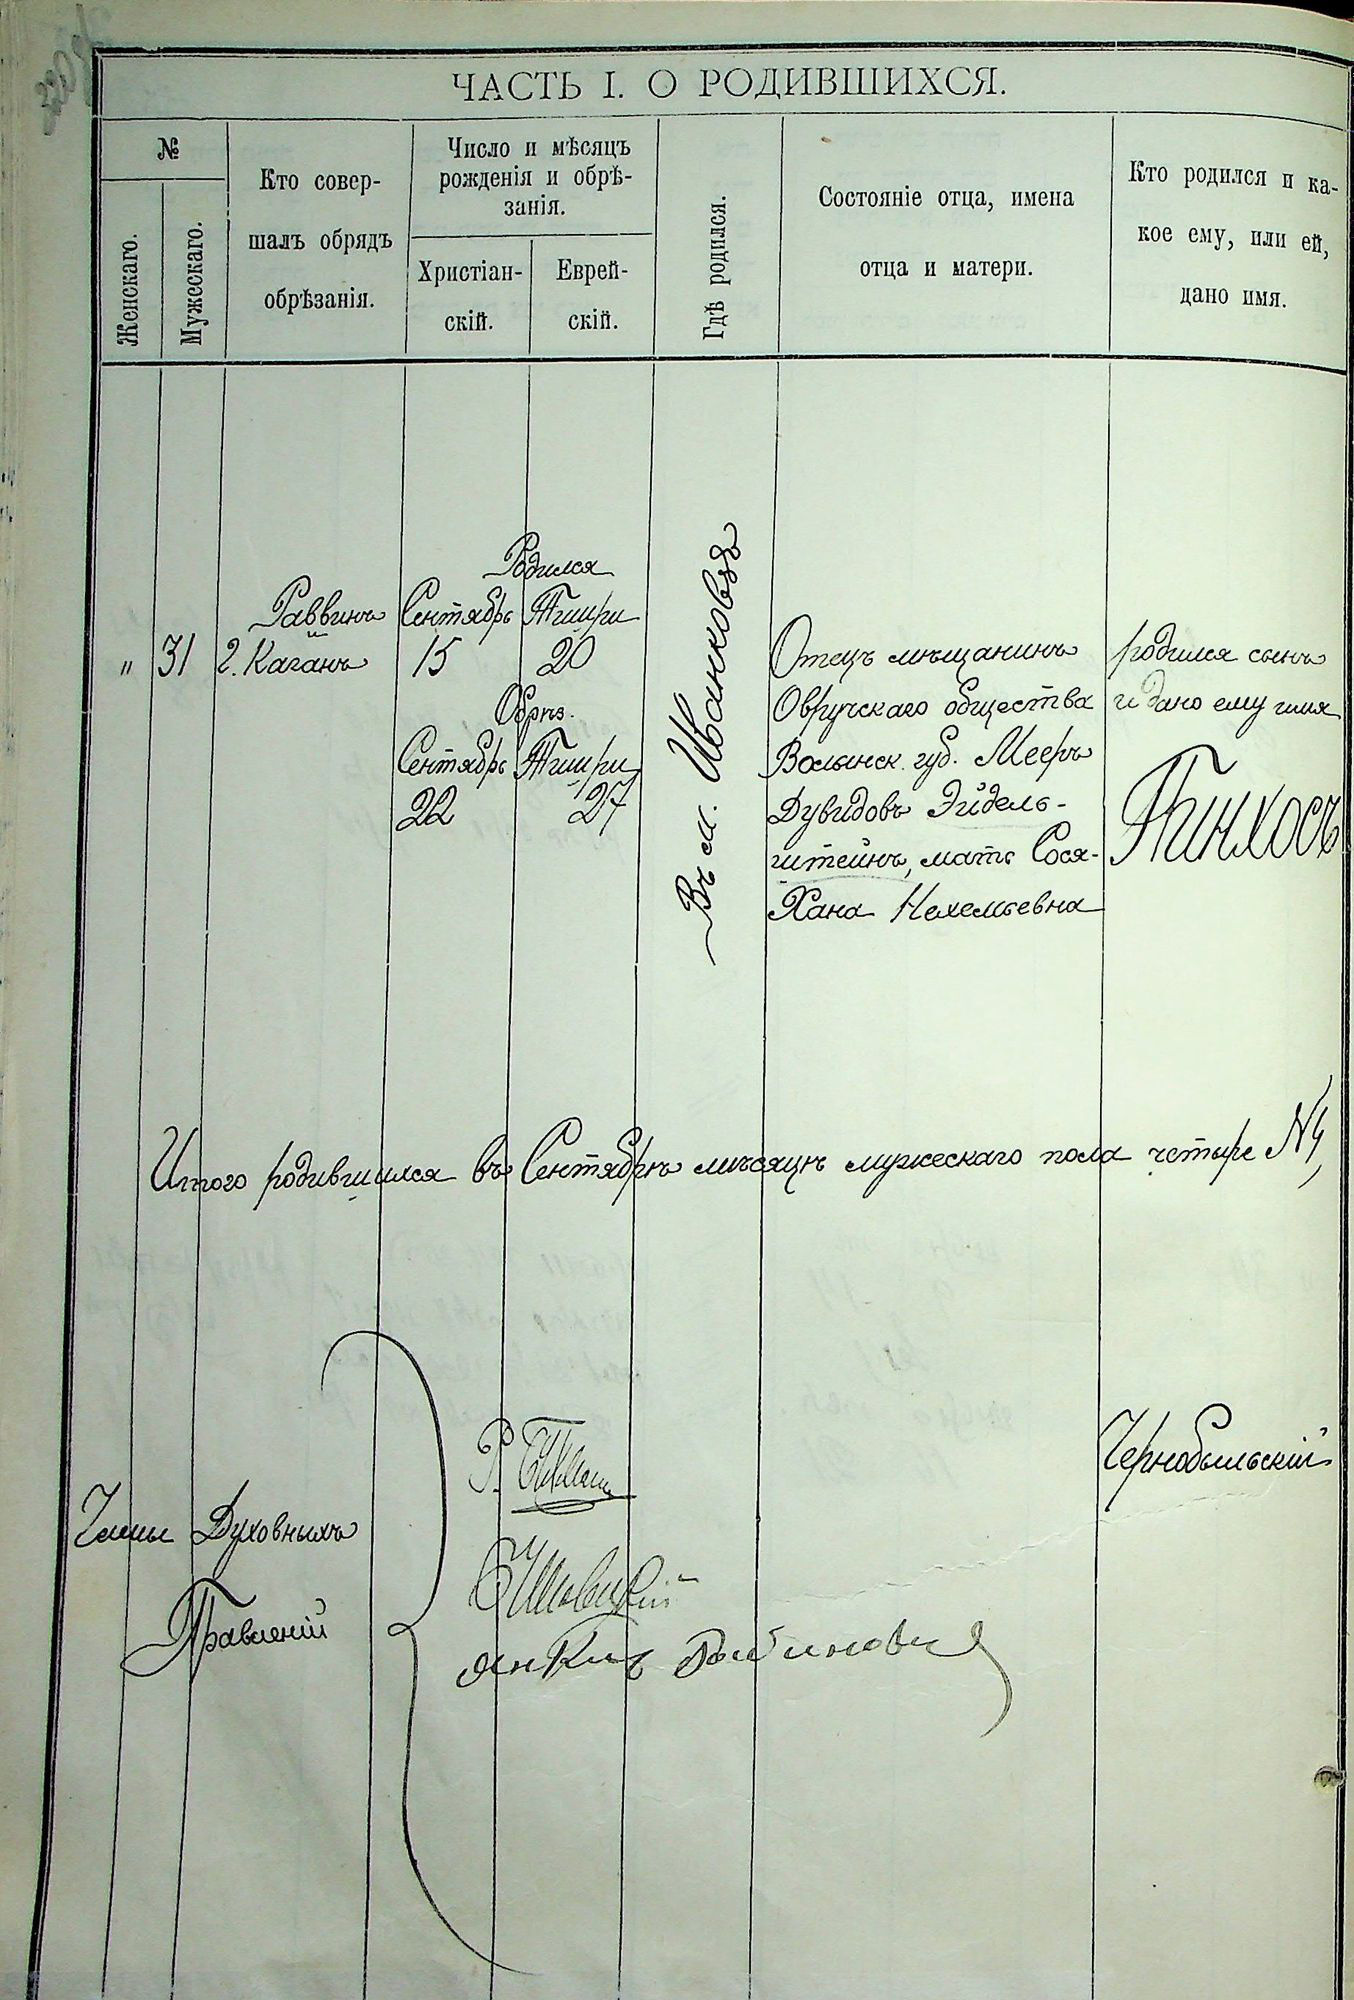 ЧАСТЬ I. О РОДИВШИХСЯ.
№
Женскаго.
Мужескаго.
Кто совер-
шалъ обрядъ
обрѣзанія.
Число и мѣсяцъ
рожденія и обрѣ-
занія.
Христіан-
скій.
Еврей-
скій.
Гдѣ родился.
Состояніе отца, имена
отца и матери.
Кто родился и ка-
кое ему, или ей,
дано имя.
"
31
Раввинъ
г. Каганъ
Родился
Сентябрь Тишри
15 20
Обрѣз.
Сентябрь Тишри
22 27
Въ м. Иванковѣ
Отецъ мѣщанинъ
Овручскаго общества
Волынск. губ. Мееръ
Дувидовъ Эйдель-
штейнъ, мать Сося-
Хана Нехемьевна
родился сынъ
и дано ему имя
Пинхосъ
Итого родившихся въ Сентябрѣ мѣсяцѣ мужескаго пола четыре № 4
Члены Духовныхъ
Правленій
Р.
Чернобыльскій